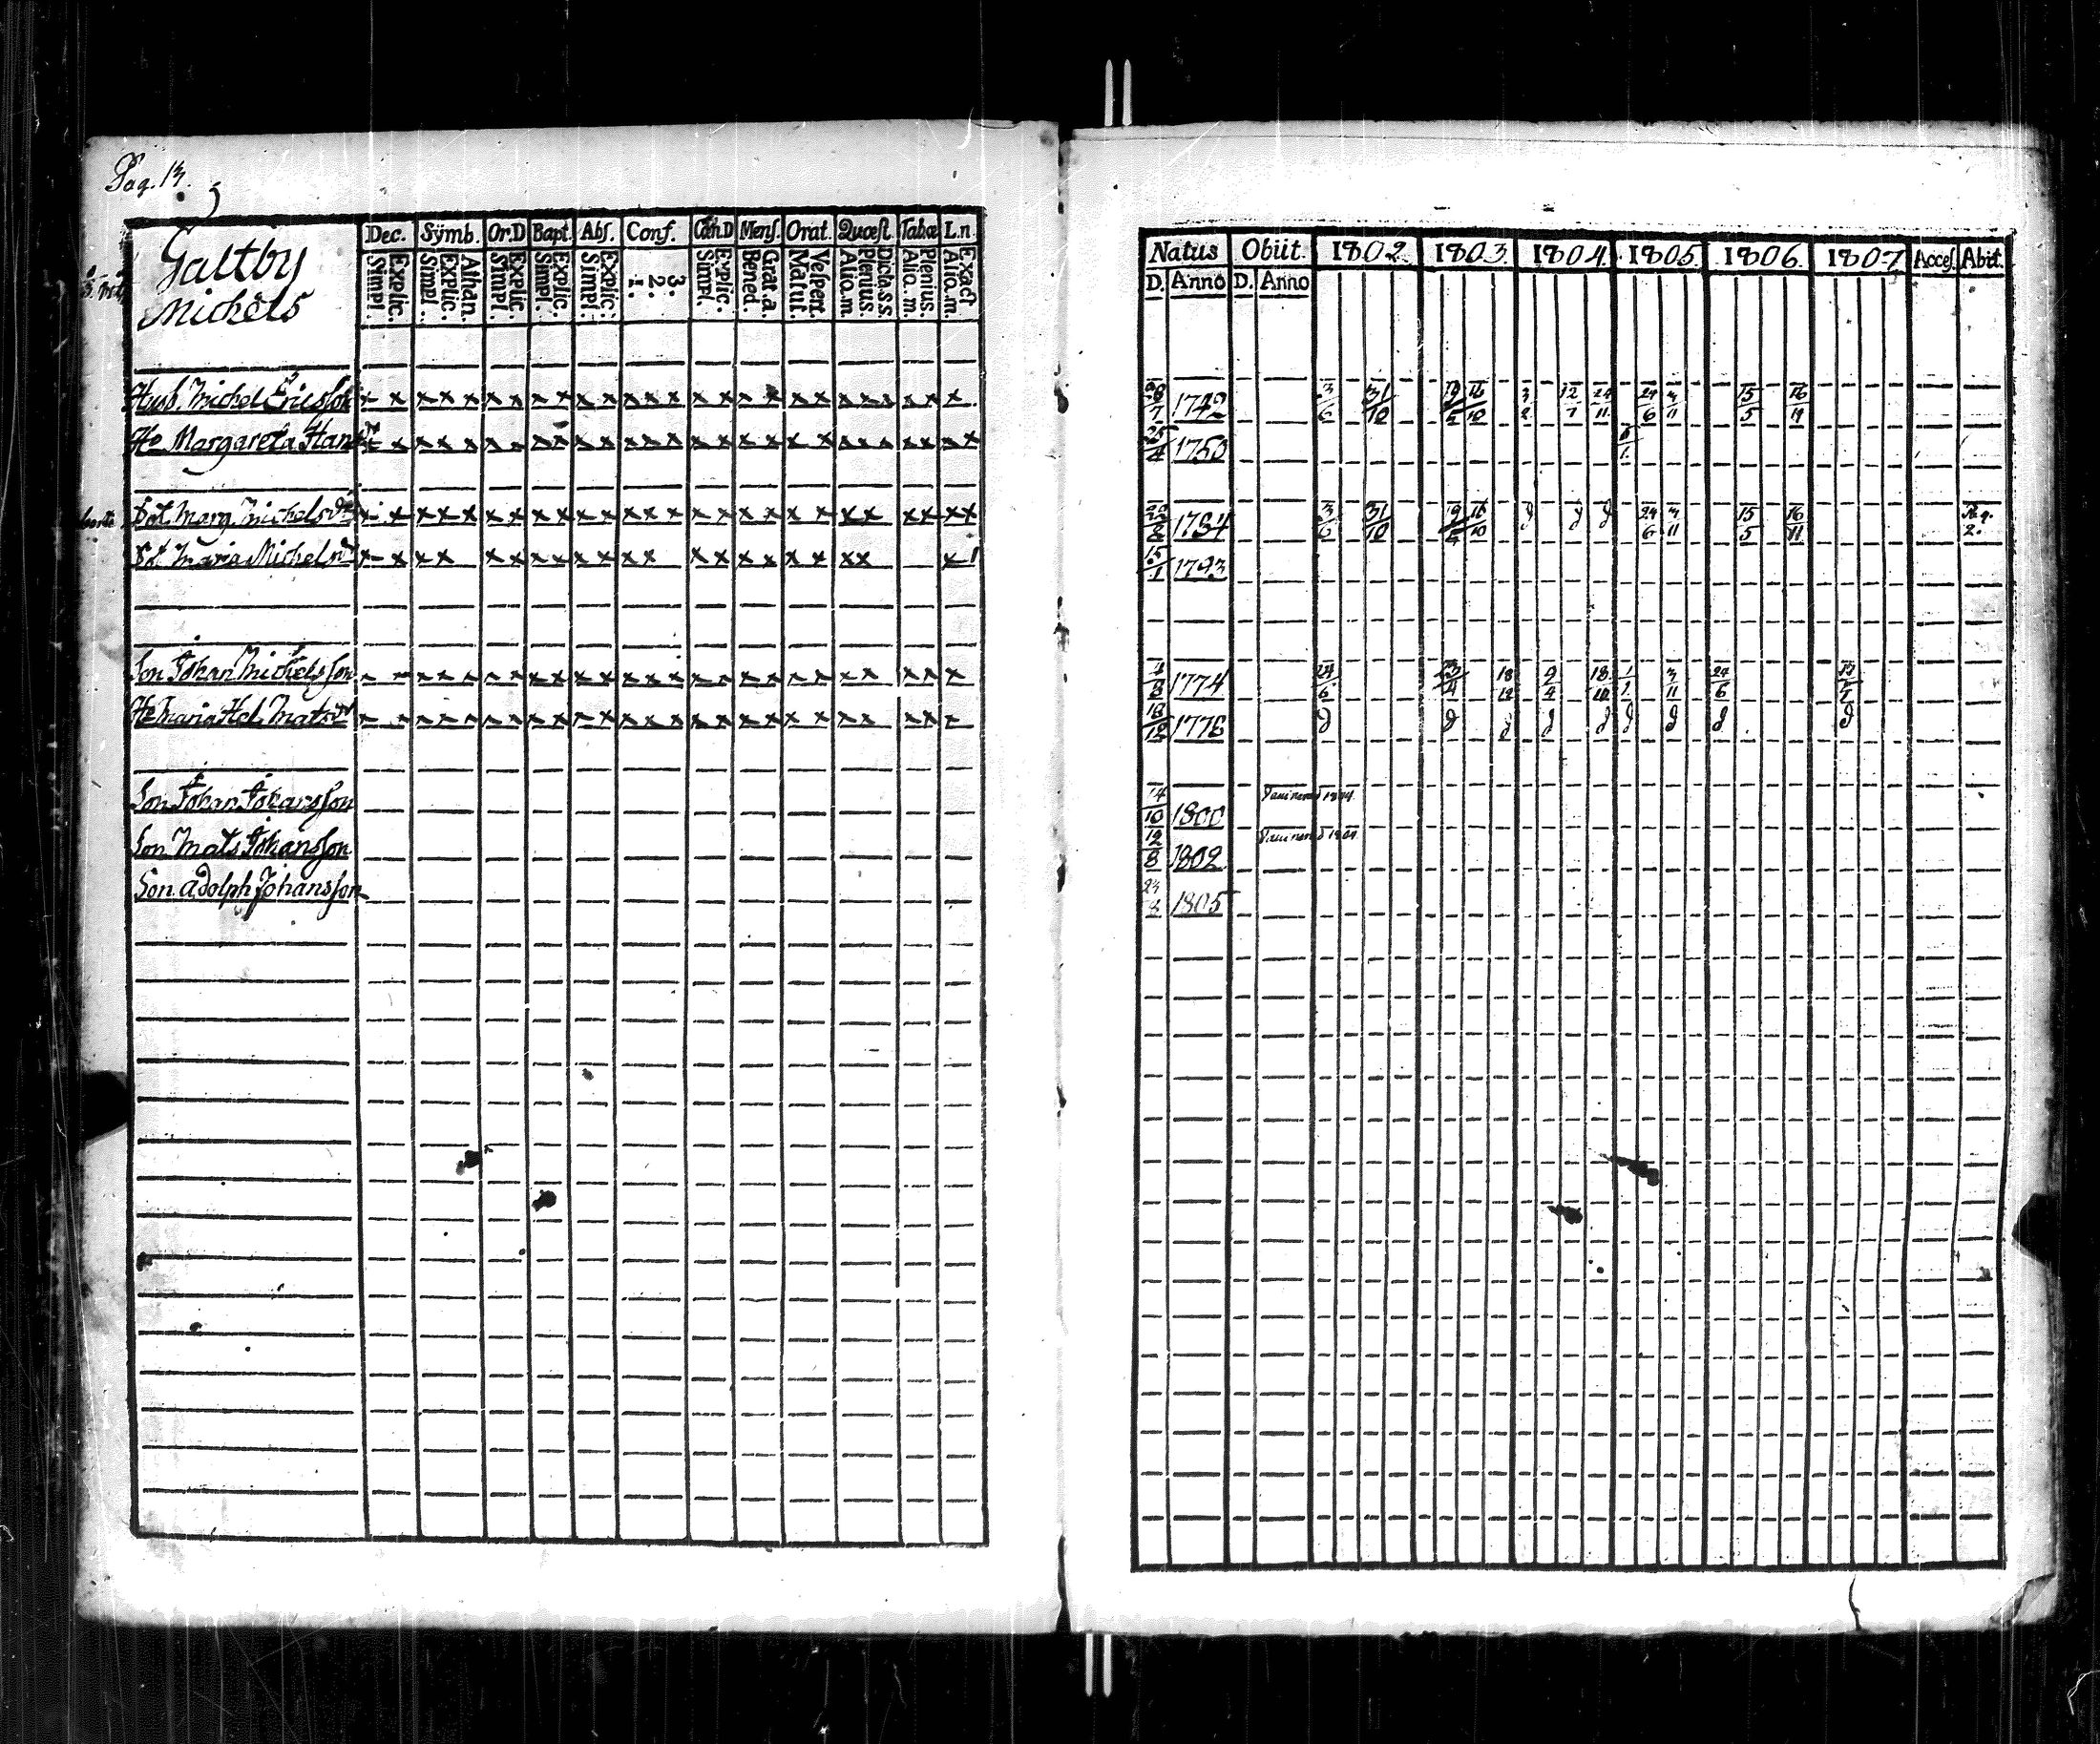 Pag. 13.
Galtby
Michels
Dec. Symb. Or.D Bapt. Abs. Conf. Cœn.D Mens. Orat. Quæst. Tabæ L.n.
Simpl. Explic. Simpl. Explic. Athan. Simpl. Explic. Simpl. Explic. Simpl. Explic. 1. 2. 3. Simpl. Explic. Bened. Grat.a. Matut. Vespert. Alio.m. Plenius. Dicta.s.s. Alio.m. Plenius. Alio.m. Exact
Natus Obiit. 1802. 1803. 1804. 1805. 1806. 1807. Acces. Abit.
D. Anno D. Anno
Husb. Michel Ericsson 1742 3/6 31/10 16/10 12/7 24/11 24/6 3/11 15/5 16/11
Ho Margareta Hans 1750
Dot. Marg. Michelsdr 1784 3/6 31/10 16/10 24/6 3/11 15/5 16/11 Pag. 2.
Dot Maria Michelsdr 15/1 1793
Son Johan Michelsson 4/8 1774 24/6 18/12 9/4 18/11 1/1 3/11 24/6
Ho Maria Hel. Matsdr 18/12 1776
Son Johan Johansson 14/10 1800 Vaccinerad 1804
Son Mats Johansson 12/8 1802 Vaccinerad 1804
Son Adolph Johansson 23/8 1805